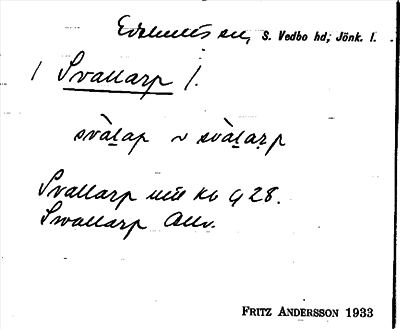 Edshults sn, S. Vedbo hd, Jönk. l.
/ Svallarp /.
svàlap ~ svàlarp
Svallarp utte kb G 28.
Swallarp Allv.
FRITZ ANDERSSON 1933